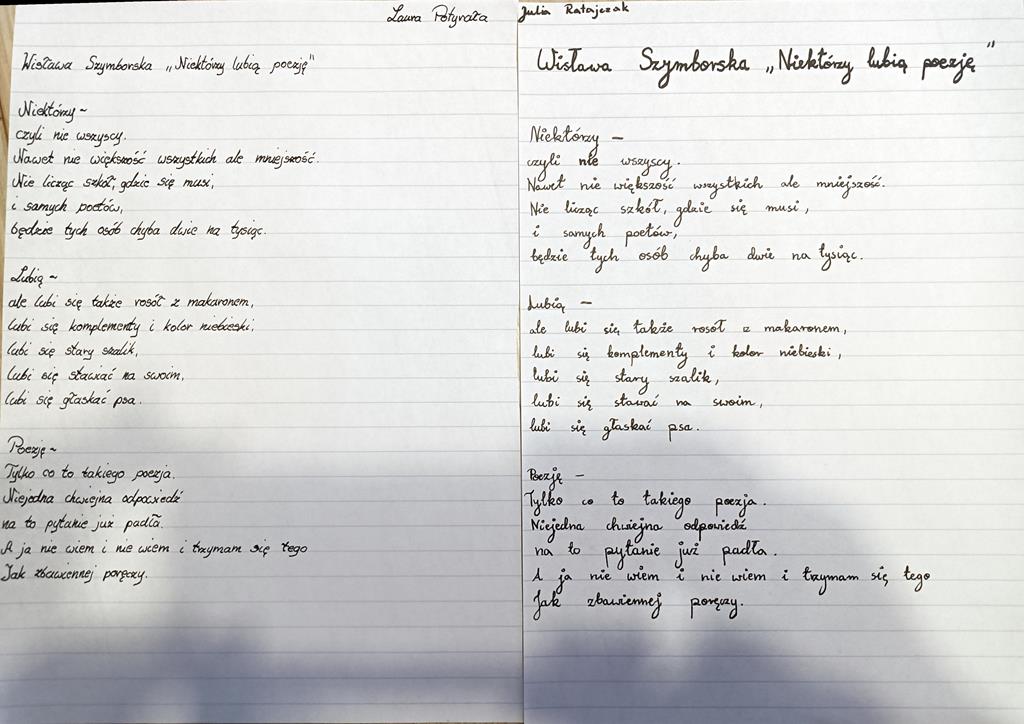 Laura Potyrała
Wisława Szymborska „Niektórzy lubią poezję"
Niektórzy~
czyli nie wszyscy.
Nawet nie większość wszystkich ale mniejszość.
Nie licząc szkół, gdzie się musi,
i samych poetów,
będzie tych osób chyba dwie na tysiąc.
Lubią~
ale lubi się także rosół z makaronem,
lubi się komplementy i kolor niebieski,
lubi się stary szalik,
lubi się stawiać na swoim,
lubi się głaskać psa.
Poezję~
Tylko co to takiego poezja.
Niejedna chwiejna odpowiedź
na to pytanie już padła.
A ja nie wiem i nie wiem i trzymam się tego
Jak zbawiennej poręczy.
Julia Ratajczak
Wisława Szymborska „Niektórzy lubią poezję"
Niektórzy –
czyli nie wszyscy.
Nawet nie większość wszystkich ale mniejszość.
Nie licząc szkół, gdzie się musi,
i samych poetów,
będzie tych osób chyba dwie na tysiąc.
Lubią –
ale lubi się także rosół z makaronem,
lubi się komplementy i kolor niebieski,
lubi się stary szalik,
lubi się stawać na swoim,
lubi się głaskać psa.
Poezję –
Tylko co to takiego poezja.
Niejedna chwiejna odpowiedź
na to pytanie już padła.
A ja nie wiem i nie wiem i trzymam się tego
Jak zbawiennej poręczy.